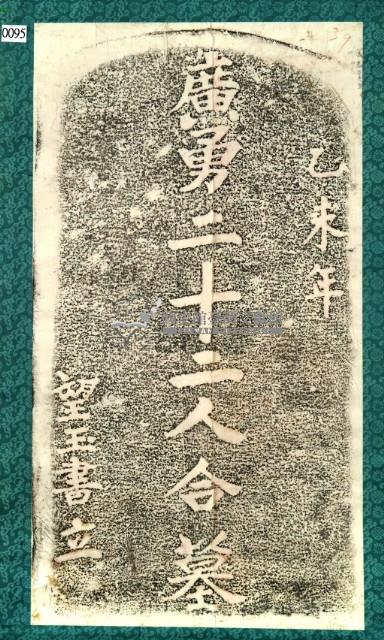 0095
29
乙未年
廣勇二十二人合墓
玉書立